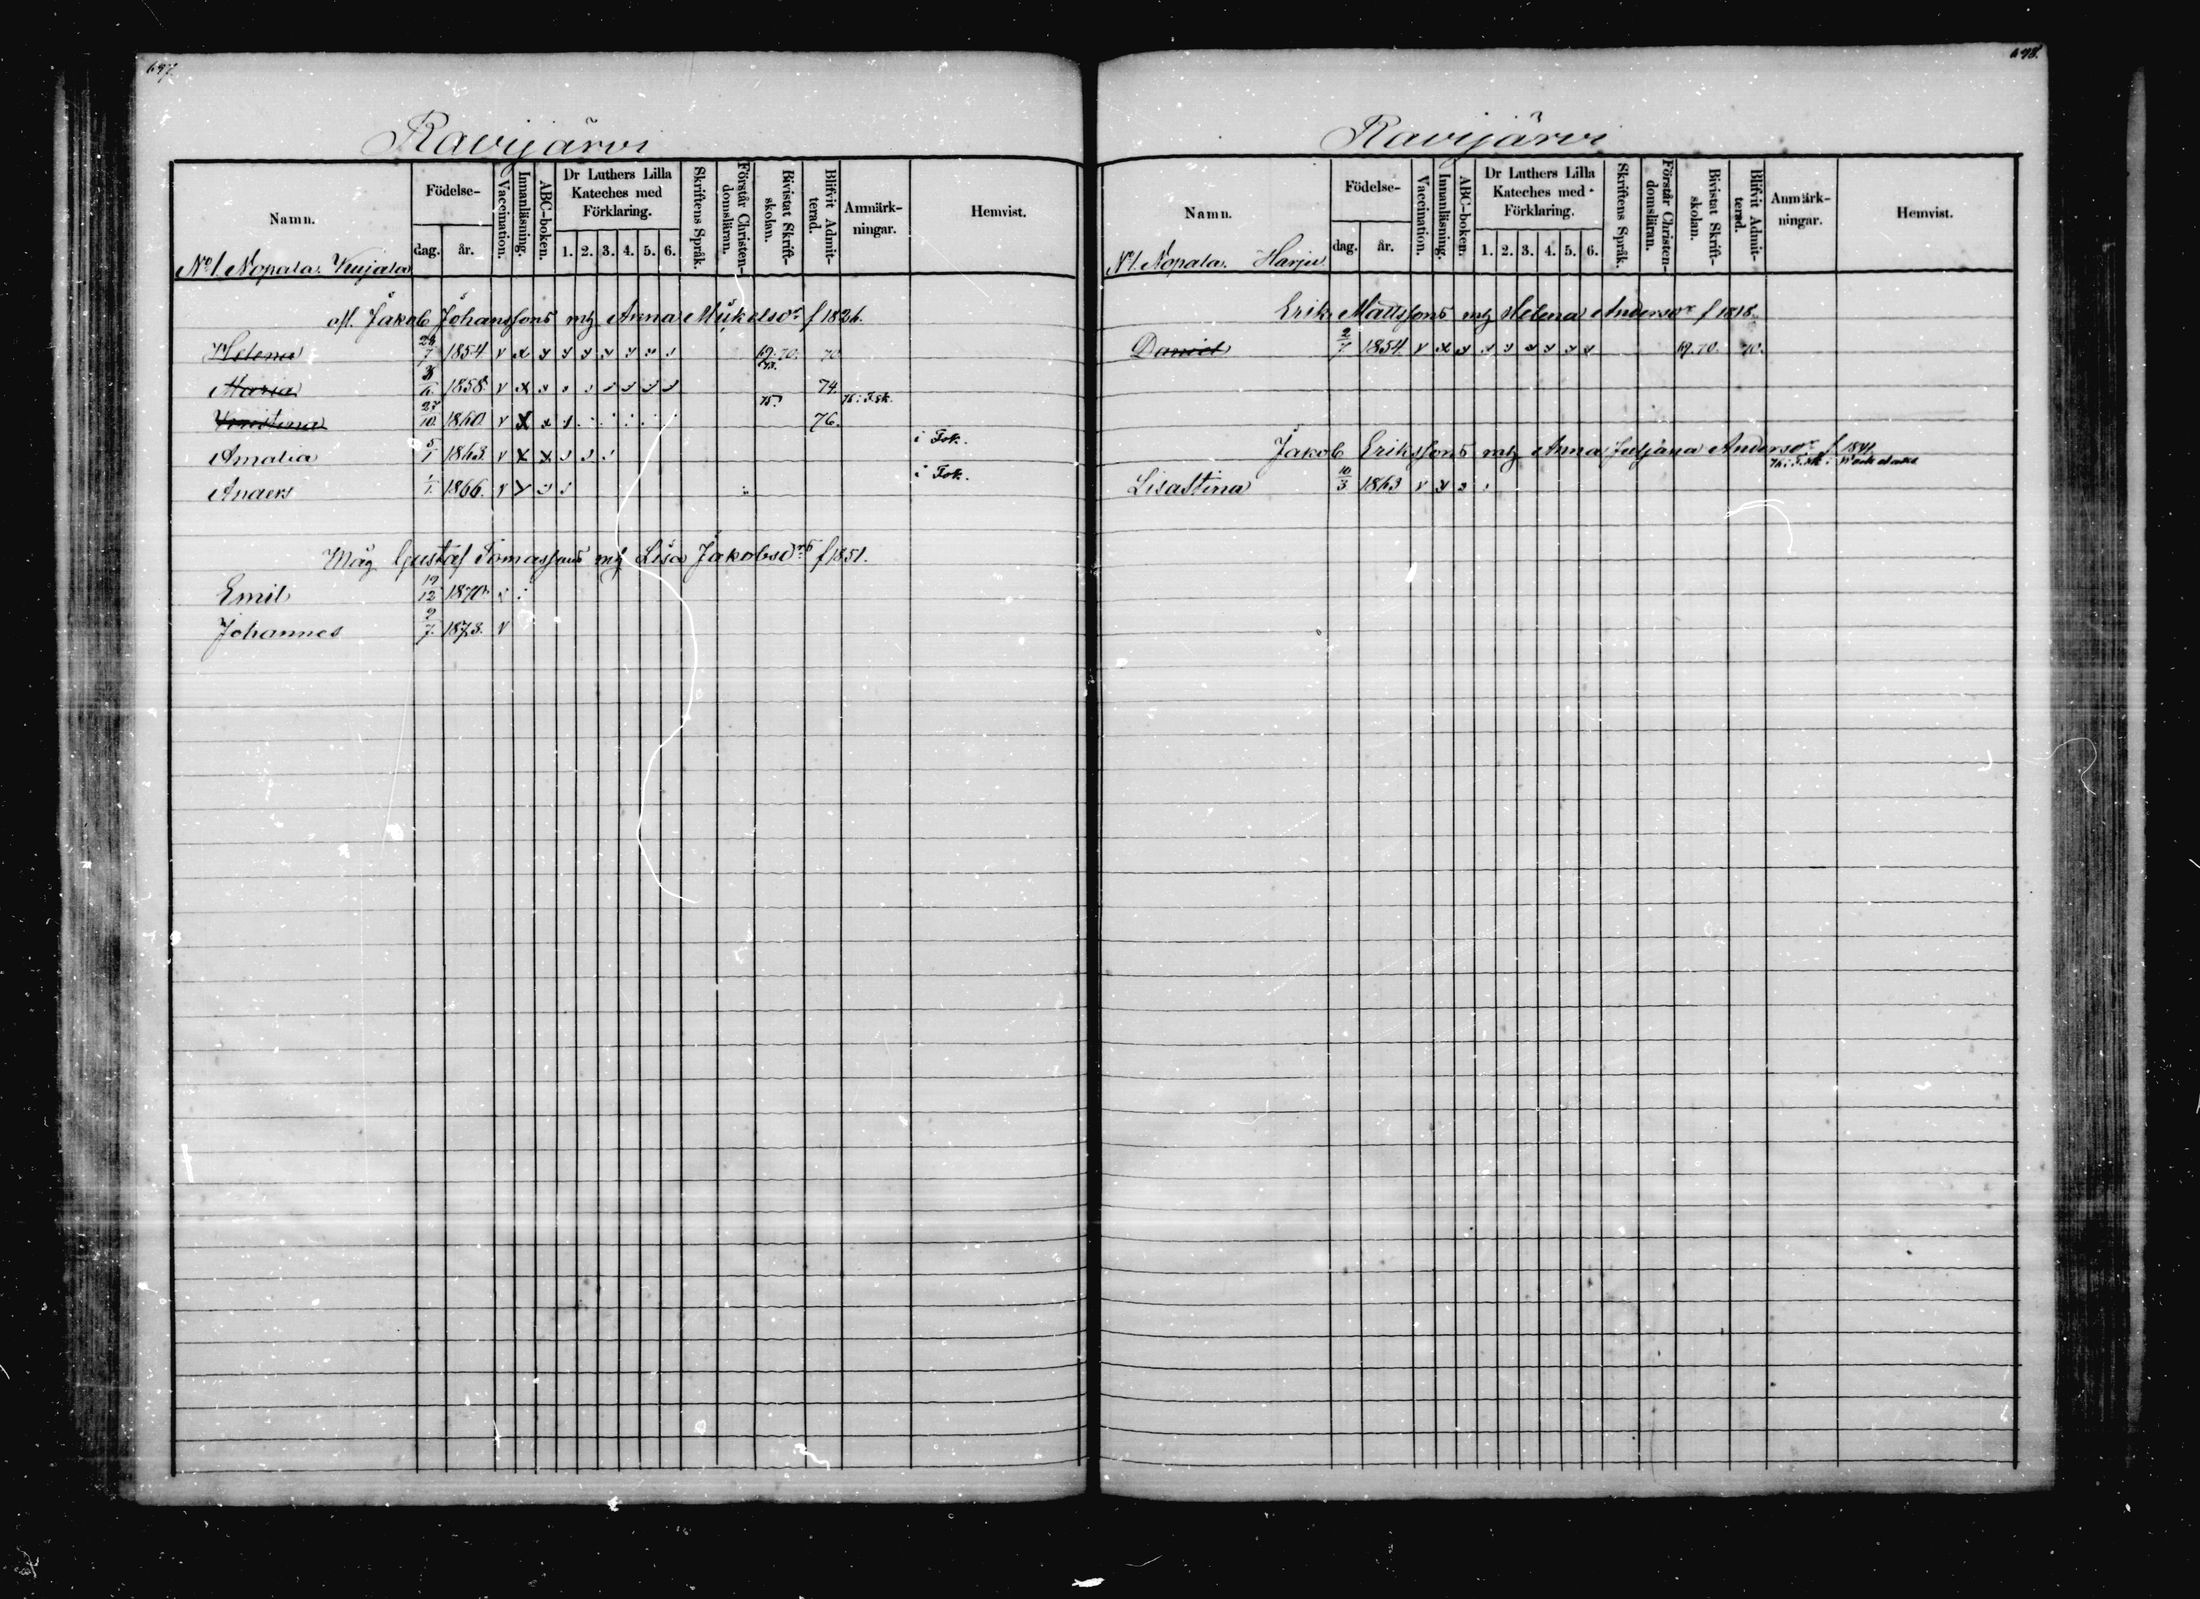 697.
Ravijärvi
Namn. Födelse- dag. år. Vaccination. Innanläsning. ABC-boken. Dr Luthers Lilla Kateches med Förklaring. 1. 2. 3. 4. 5. 6. Skriftens Språk. Förstår Christendomsläran. Bivistat Skriftskolan. Blifvit Admitterad. Anmärkningar. Hemvist.
No 1. Nopala. Kujala
afl. Jakob Johanssons mh Anna Mickelsdr f 1826.
Helena 1854 v x 69. 70. 70
Maria 1858 v x 73. 74.
27/10 1860 v x 75. 76.
Amalia 5/1 1863 v x x i Fsk.
Anders 1/1 1866. v i Fsk.
Måg Gustaf Tomassons mh Lisa Jakobsdrs f 1851.
Emil 19/12 1870
Johannes 9/7. 1873. v
698.
Ravijärvi
Namn. Födelse- dag. år. Vaccination. Innanläsning. ABC-boken. Dr Luthers Lilla Kateches med Förklaring. 1. 2. 3. 4. 5. 6. Skriftens Språk. Förstår Christendomsläran. Bivistat Skriftskolan. Blifvit Admitterad. Anmärkningar. Hemvist.
No 1. Nopala. Harju
Erik Mattssons mh Helena Andersdr f 1818.
Daniel 2/7 1854. v x 69. 70. 70.
Jakob Erikssons mh Anna Juljana Andersdr f 1841
Lisastina 10/3 1863 v